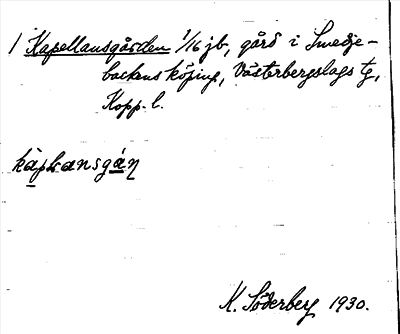 / Kapellansgården 1/16 jb, gård i Smedje-
backens köping, Västerbergslags tg,
Kopp. l.
kaplansgáṇ
K. Söderberg 1930.